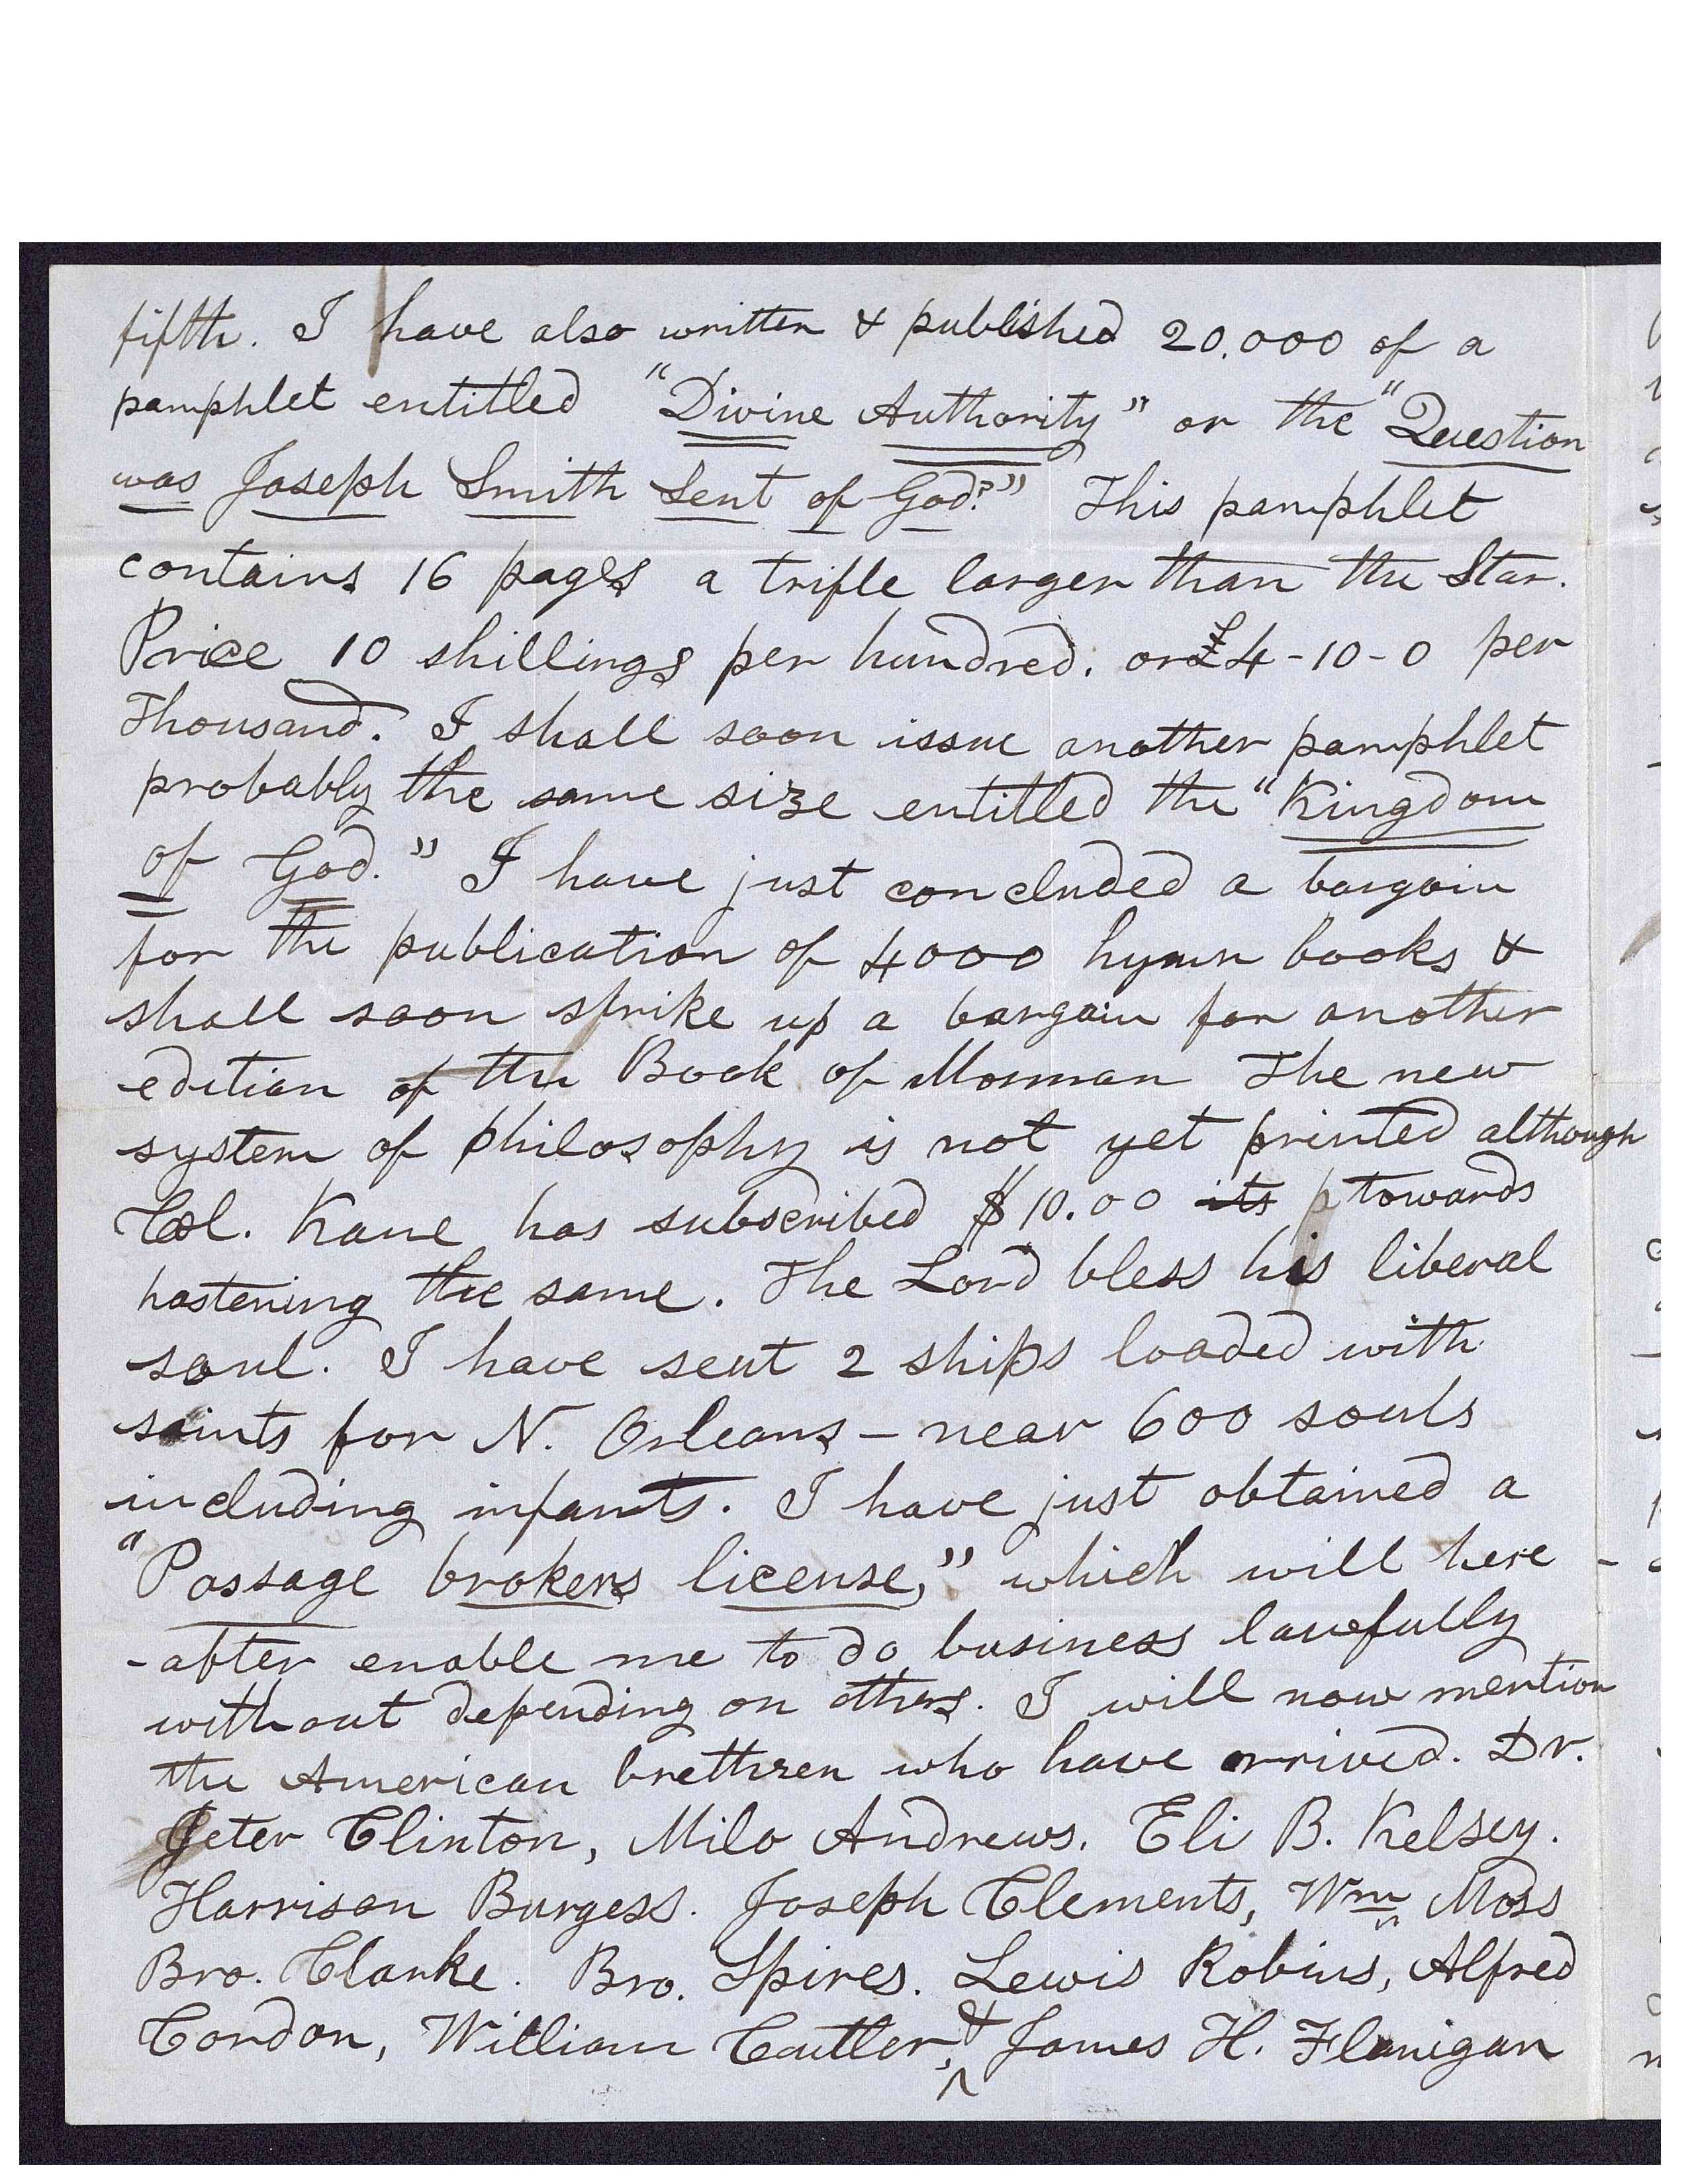 fifth. I have also written & published 20.000 of a
pamphlet entitled "Divine Authority" or the "Question
was Joseph Smith Sent of God?" This pamphlet
contains 16 pages a trifle larger than the Star.
Price 10 shillings per hundred. or £4-10-0 per
Thousand. I shall soon issue another pamphlet
probably the same size entitled the "Kingdom
of God." I have just concluded a bargain
for the publication of 4000 hymn books &
shall soon strike up a bargain for another
edition of the Book of Mormon The new
system of philosophy is not yet printed although
Col. Kane has subscribed $10.00 its p towards
hastening the same. The Lord bless his liberal
soul. I have sent 2 ships loaded with
saints for N. Orleans - near 600 souls
including infants. I have just obtained a
"Passage brokers license," which will here -
- after enable me to do business lawfully
without depending on others. I will now mention
the American brethren who have arrived. Dr.
Jeter Clinton, Milo Andrews. Eli B. Kelsey.
Harrison Burgess. Joseph Clements, Wm Moss
Bro. Clarke. Bro. Spires. Lewis Robins, Alfred
Cordon, William Cutler, & James H. Flanigan